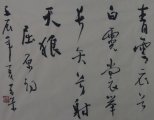 青云衣兮
白霓裳举
长矢兮射
天狼
屈原词
壬辰年